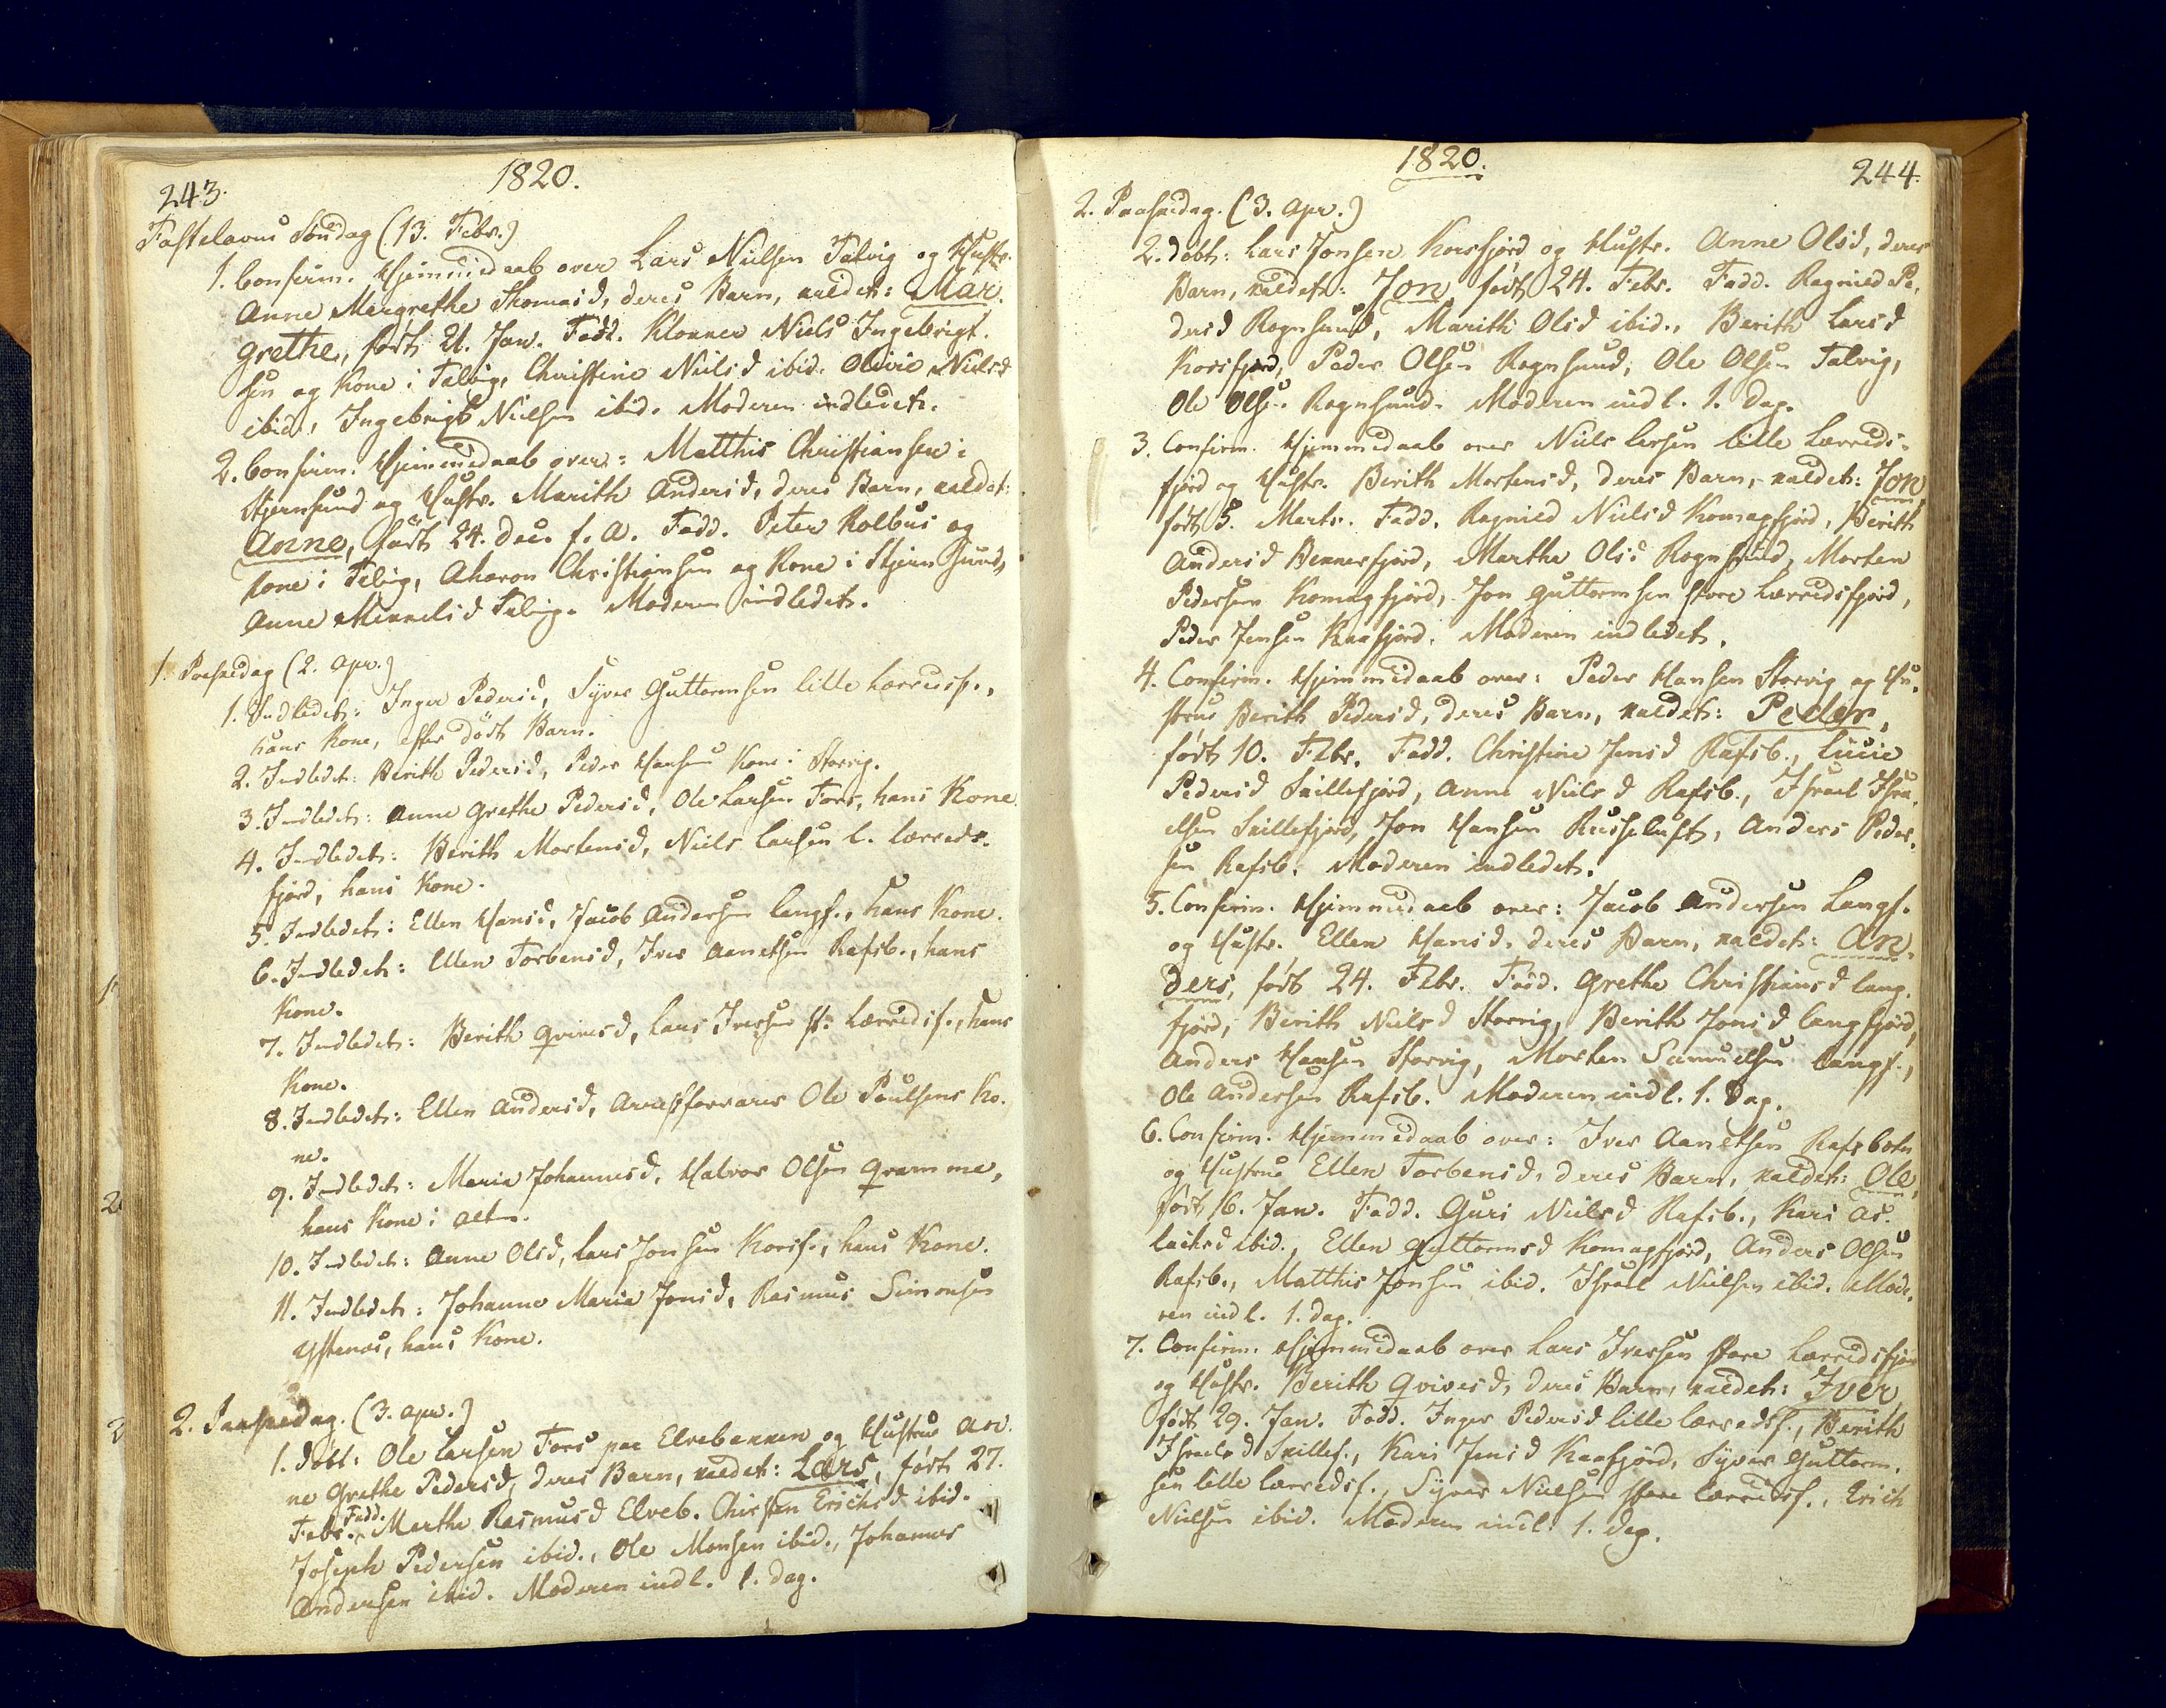 243.
1820.
Fastelavns Søndag (13. Febr.)
1. Confirm. Hjemmedaab over Lars Nielsen Talvig og Hustr.
Anne Margrethe Thomasd, deres Barn, kaldet: Mar-
grethe, født 21. Jan. Fadd. Klokker Niels Ingebrigt-
sen og Kone i Talvig, Christine Nielsd ibid. Olivie Nielsd
ibid., Ingebrigt Nielsen ibid. Moderen indledet.
2. Confirm. Hjemmedaab over: Matthis Christiansen i
Stjernsund og Hustr. Marith Andersd, deres Barn, kaldet:
Anne, født 24. Dec. f. A. Fadd. Peter Kolbus og
Kone i Talvig, Aharon Christiansen og Kone i Stjernsund,
Anne Mikkelsd Talvig. Moderen indledet.
1. Paaskedag (2. Apr.)
1. Indledet: Inger Pedersd, Syver Guttormsen lille Lerredsf.,
hans Kone, efter dødt Barn.
2. Indledet: Berith Pedersd, Peder Hansens Kone i Storvig.
3. Indledet: Anne Grethe Pedersd, Ole Larsen Fors, hans Kone.
4. Indledet: Berith Mortensd, Niels Larsen l. Lerreds-
fjord, hans Kone.
5. Indledet: Ellen Hansd, Jacob Andersen Langf., hans Kone.
6. Indledet: Ellen Torbensd, Iver Aanetsen Rafsb., hans
Kone.
7. Indledet: Berith Qvivesd, Lars Iversen st. Lerredsf., hans
Kone.
8. Indledet: Ellen Andersd, Arrestforvarer Ole Poulsens Ko-
ne.
9. Indledet: Maria Johannesd, Halvor Olsen Qvamme,
hans Kone i Alten.
10. Indledet: Anne Olsd, Lars Jonsen Korsf., hans Kone.
11. Indledet: Johanne Maria Jonsd, Rasmus Simonsen
Ystenæs, hans Kone.
2. Paaskedag. (3. Apr.)
1. Døbt: Ole Larsen Fors paa Elvebakken og Hustrue An-
ne Grethe Pedersd, deres Barn, kaldet: Lars, født 27.
Febr. Fadd. Marthe Rasmusd Elveb. Chirsten Ericksd ibid.
Joseph Pedersen ibid., Ole Monsen ibid., Johannes
Andersen ibid. Moderen indl. 1. Dag.
1820.
244.
2. Paaskedag. (3. Apr.)
2. Døbt: Lars Jonsen Korsfjord og Hustr. Anne Olsd, deres
Barn, kaldet: Jon født 24. Febr. Fadd. Ragnild Pe-
dersd Rognsund, Marith Olsd ibid., Berith Larsd
Korsfjord, Peder Olsen Rognsund, Ole Olsen Talvig,
Ole Olsen Rognsund. Moderen indl. 1. Dag.
3. Confirm. Hjemmedaab over Niels Larsen lille Lerreds-
fjord og Hustr. Berith Mortensd, deres Barn, kaldet: Jon,
født 5. Marts. Fadd. Ragnild Nielsd Komagfjord, Berith
Andersd Bekkerfjord, Marthe Olsd Rognsund, Morten
Pedersen Komagfjord, Jon Guttormsen store Lerredsfjord,
Peder Jensen Kaafjord. Moderen indledet.
4. Confirm. Hjemmedaab over: Peder Hansen Storvig og Hu-
strue Berith Pedersd, deres Barn, kaldet: Peder,
født 10. Febr. Fadd. Christine Jensd Rafsb., Lucie
Pedersd Skillefjord, Anne Nielsd Rafsb., Israel Isra-
elsen Skillefjord, Jon Hansen Russeluft, Anders Peder-
sen Rafsb. Moderen indledet.
5. Confirm. Hjemmedaab over: Jacob Andersen Langf.
og Hustr. Ellen Hansd, deres Barn, kaldet: An-
ders, født 24. Febr. Fadd. Grethe Christiansd Lang-
fjord, Berith Nielsd Storvig, Berith Jonsd Langfjord,
Anders Hansen Storvig, Morten Samuelsen Langf.,
Ole Andersen Rafsb. Moderen indl. 1. Dag.
6. Confirm. Hjemmedaab over: Iver Aanetsen Rafsbotn
og Hustrue Ellen Torbensd, deres Barn, kaldet: Ole,
født 16. Jan. Fadd. Guri Nielsd Rafsb., Kari As-
lachsd ibid., Ellen Guttormsd Komagfjord, Anders Olsen
Rafsb., Matthis Jonsen ibid. Israel Nielsen ibid. Mode-
ren indl. 1. Dag.
7. Confirm. Hjemmedaab over Lars Iversen store Lerredsfjord
og Hustr. Berith Qvivesd, deres Barn, kaldet: Iver,
født 29. Jan. Fadd. Inger Pedersd lille Lerredsf., Berith
Israelsd Skillef., Kari Jensd Kaafjord, Syver Guttorm-
sen lille Lerredsf., Syver Nielsen store Lerredsf., Erich
Nielsen ibid. Moderen indl. 1. Dag.